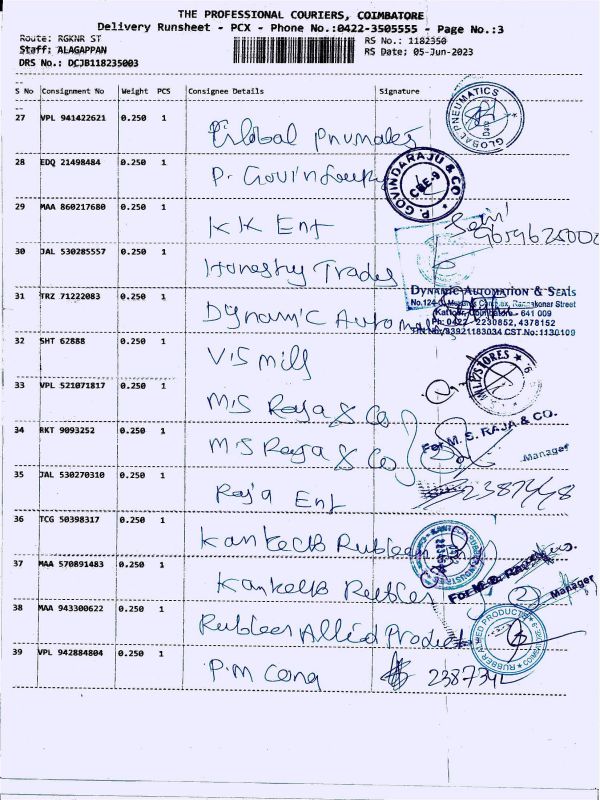 THE PROFESSIONAL COURIERS, COIMBATORE
Delivery Runsheet - PCX - Phone No.:0422-3505555 - Page No.:3
Route: RGKNR ST
RS No.: 1182350
Staff: ALAGAPPAN
RS Date: 05-Jun-2023
DRS No.: DCJB118235003
S No Consignment No Weight PCS Consignee Details Signature
27 VPL 941422621 0.250 1 Global Pnumates
GLOBAL PNEUMATICS
28 EDQ 21498484 0.250 1 P. Govindaraju
P. GOVINDARAJU & CO.
CBE-9
29 MAA 860217680 0.250 1 KK Ent
30 JAL 530285557 0.250 1 Honesty Trades
31 TRZ 71222083 0.250 1 Dynamic Automates
DYNAMIC AUTOMATION & SEALS
Kattoor, Coimbatore - 641 009
Ph: 0422 - 2230852, 4378152
CST No:1130109
32 SHT 62888 0.250 1 VIS mill
MILL STORES
33 VPL 521071817 0.250 1 M.S Raja & Co
34 RKT 9093252 0.250 1 M.S Raja & Co
For M. S. RAJA & CO.
Manager
35 JAL 530270310 0.250 1 Raja Ent
36 TCG 50398317 0.250 1 Kankecb Rubber
37 MAA 570891483 0.250 1 Kankecb Rubber
Manager
38 MAA 943300622 0.250 1 Rubber Allied Products
RUBBER ALLIED PRODUCTS
39 VPL 942884804 0.250 1 P.M Cong